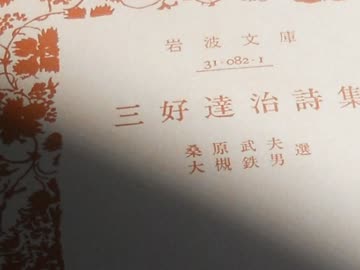 岩波文庫
31-082-1
三好達治詩集
桑原武夫 選
大槻鉄男